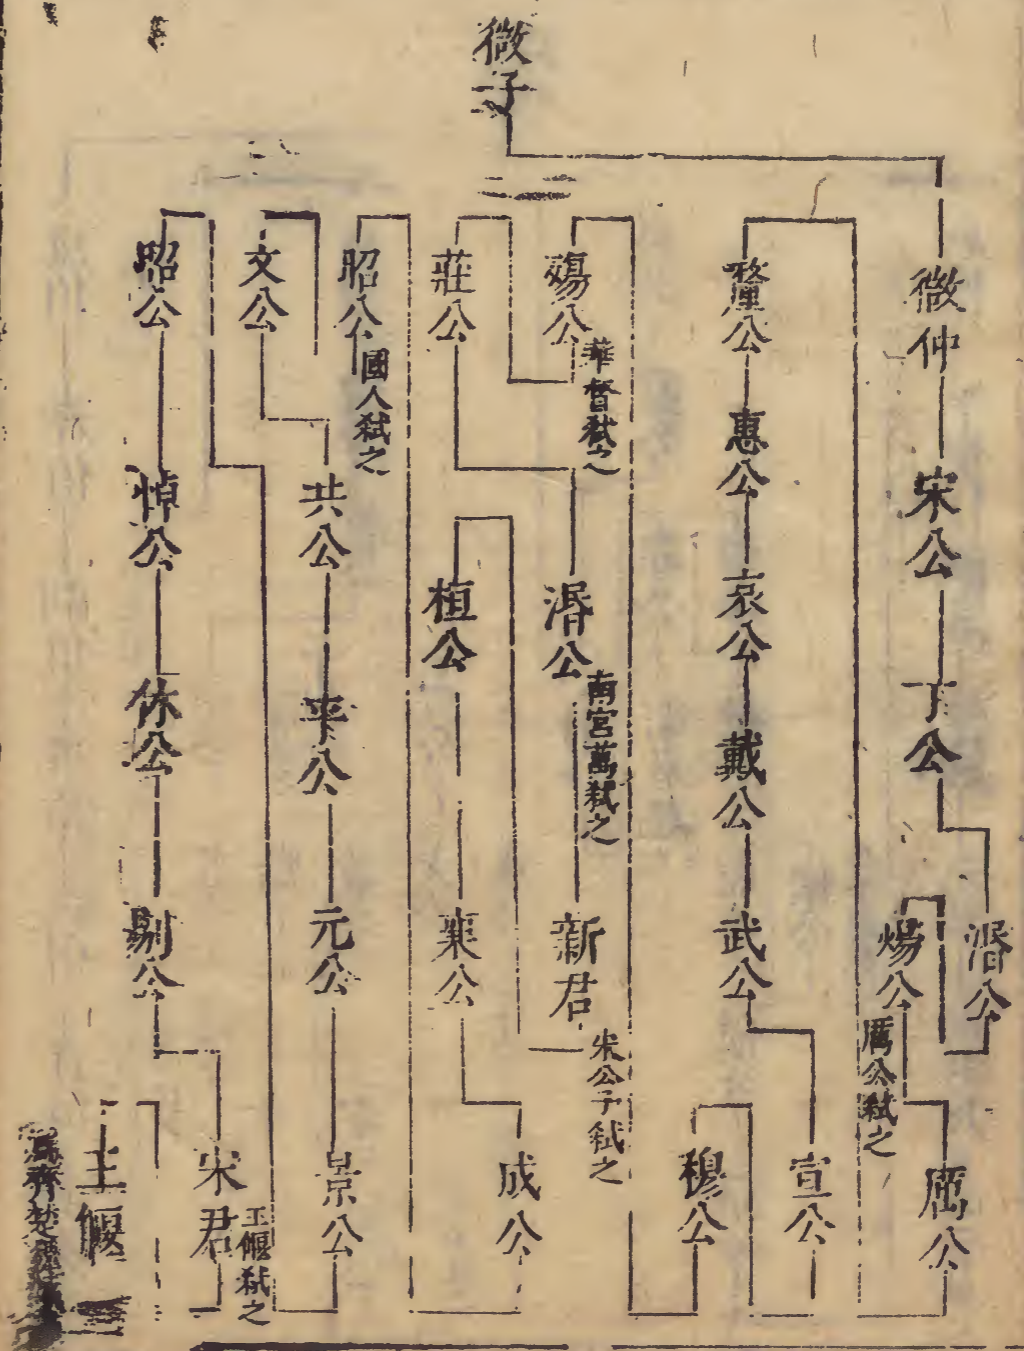 微子
微仲
宋公
丁公
湣公
煬公
厲公弑之
厲公
釐公
惠公
哀公
戴公
武公
宣公
穆公
殤公
華督弑之
莊公
湣公
南宮萬弑之
新君
宋公子弑之
桓公
襄公
成公
昭公
國人弑之
文公
共公
平公
元公
景公
昭公
悼公
休公
剔公
宋君
王偃弑之
王偃